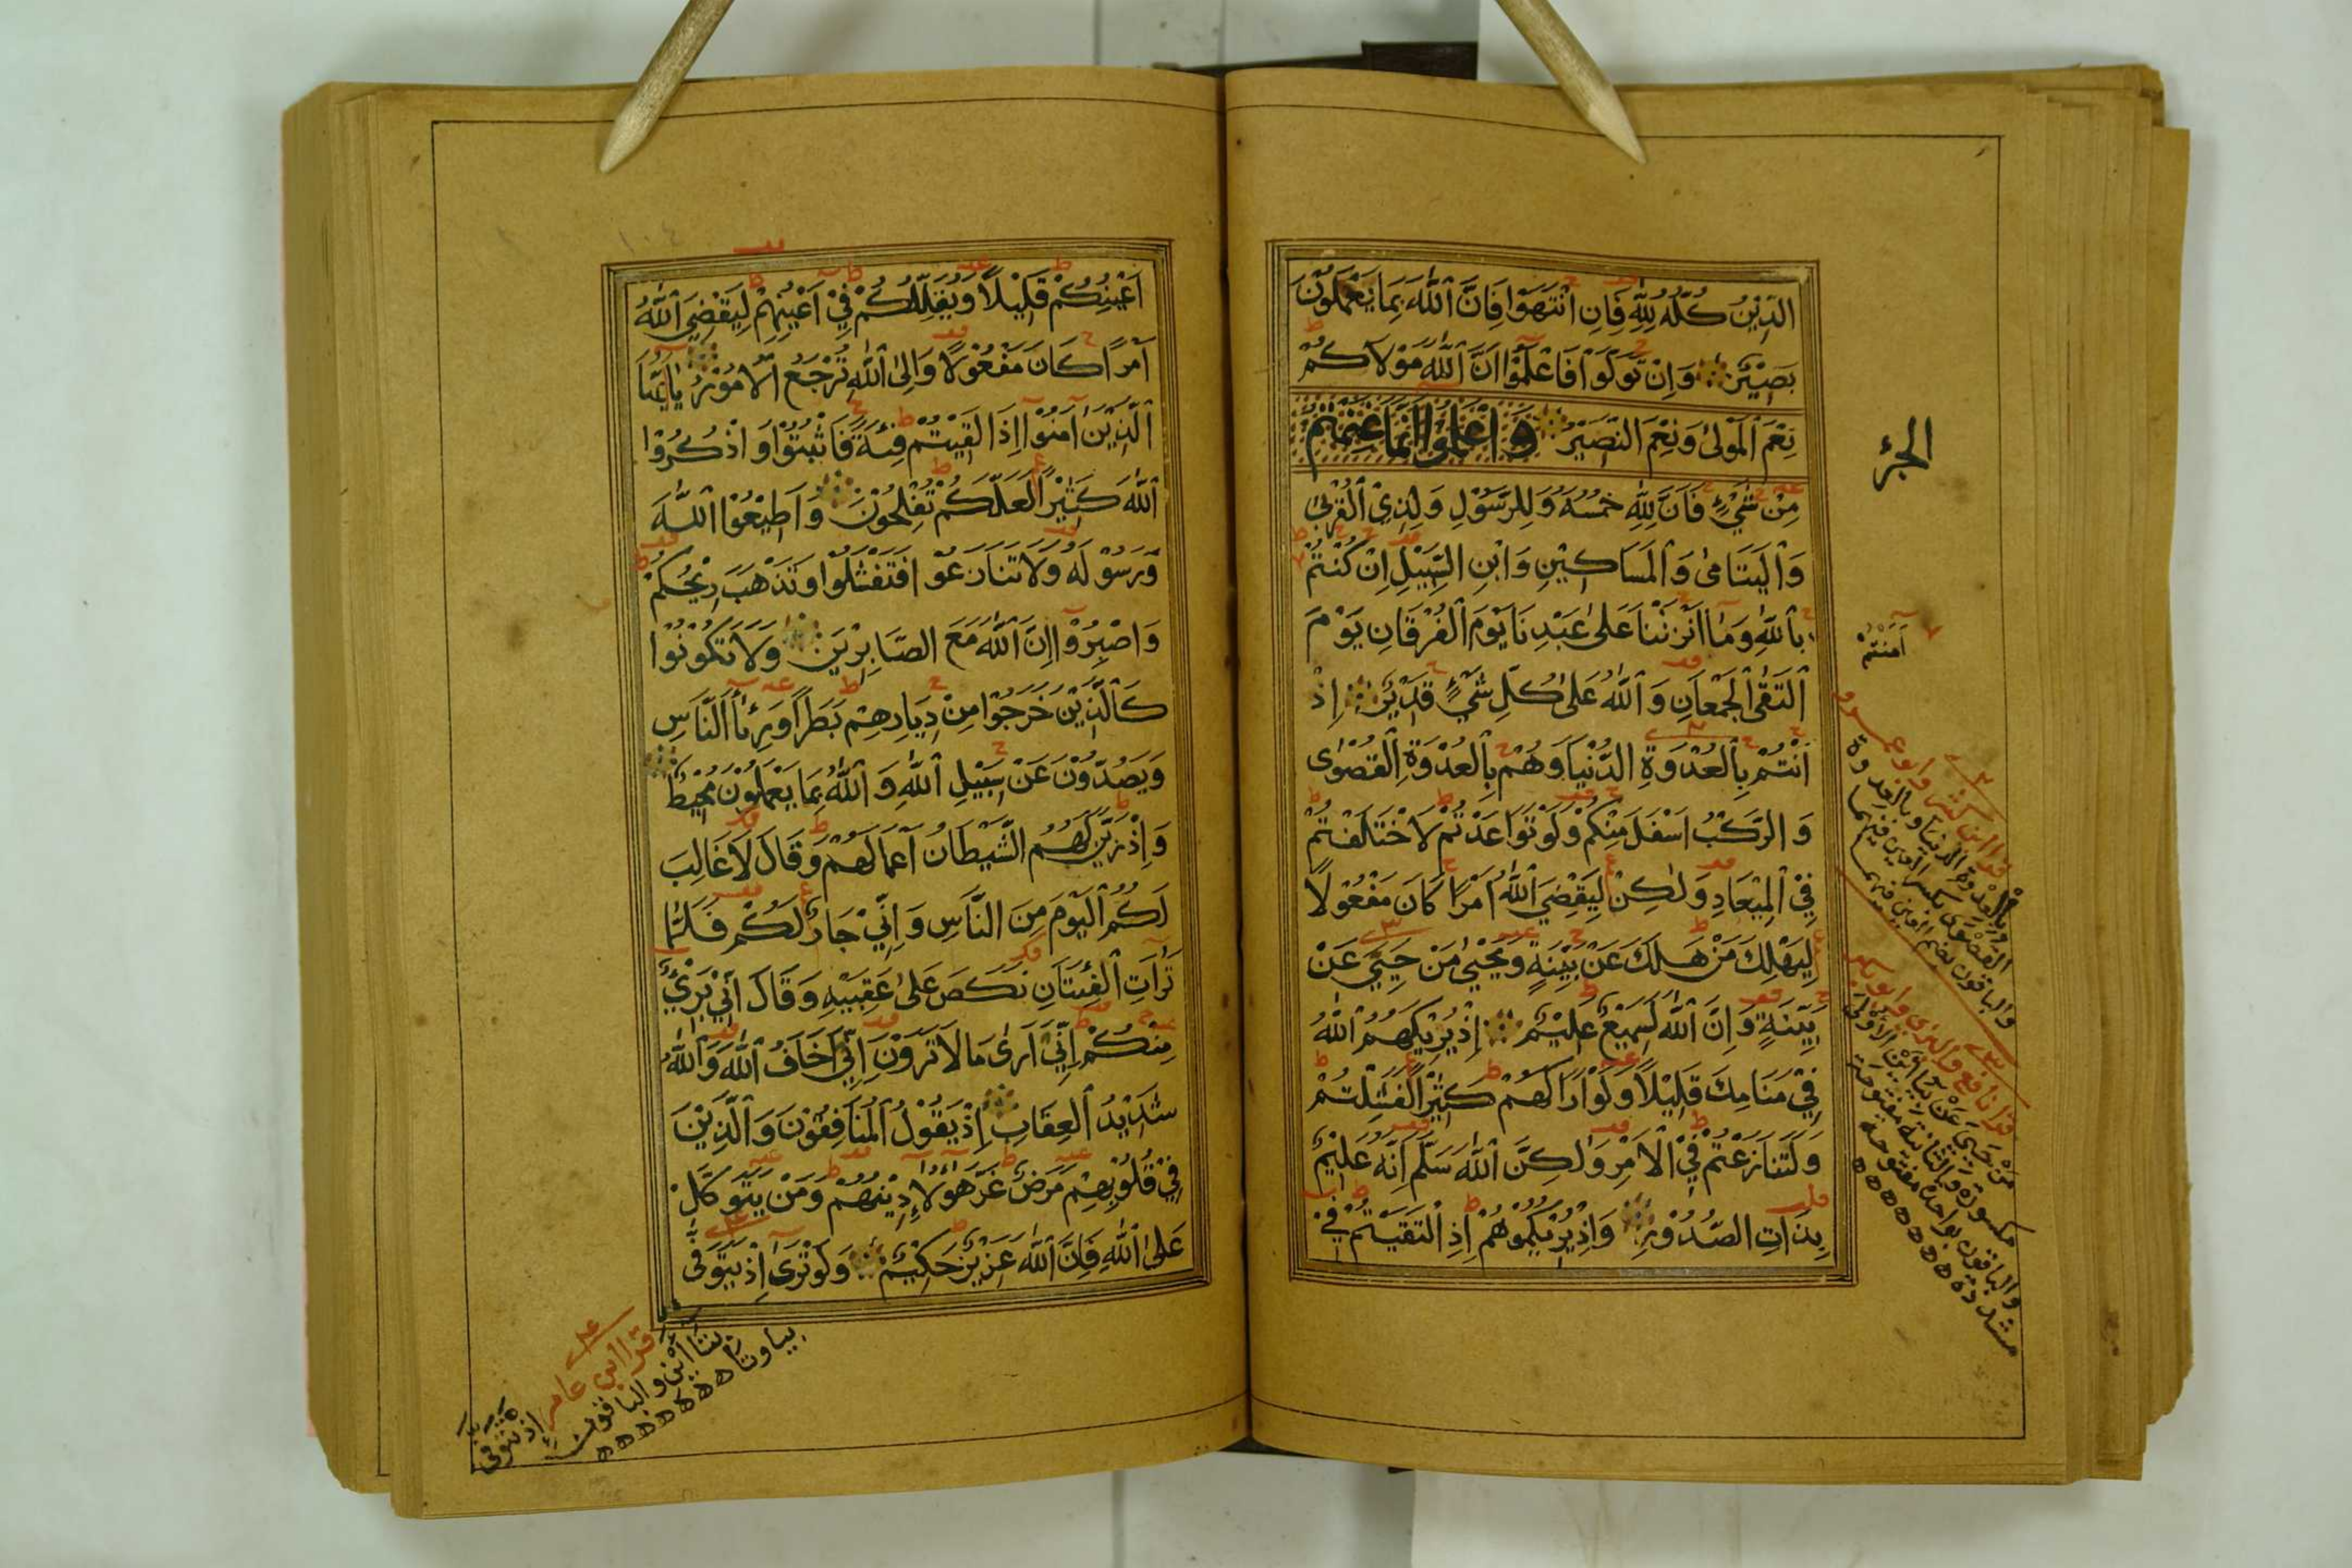 الدِّيْنُ كُلُّهُ لِلّٰهِ فَاِنِ انْتَهَوْا فَاِنَّ اللّٰهَ بِمَا يَعْمَلُوْنَ
بَصِيْرٌ وَاِنْ تَوَلَّوْا فَاعْلَمُوْا اَنَّ اللّٰهَ مَوْلَاكُمْ
نِعْمَ الْمَوْلٰى وَنِعْمَ النَّصِيْرُ وَاعْلَمُوْا اَنَّمَا غَنِمْتُمْ
مِنْ شَيْءٍ فَاَنَّ لِلّٰهِ خُمُسَهُ وَلِلرَّسُوْلِ وَلِذِي الْقُرْبٰى
وَالْيَتَامٰى وَالْمَسَاكِيْنِ وَابْنِ السَّبِيْلِ اِنْ كُنْتُمْ
بِاللّٰهِ وَمَا اَنْزَلْنَا عَلٰى عَبْدِنَا يَوْمَ الْفُرْقَانِ يَوْمَ
الْتَقَى الْجَمْعَانِ وَاللّٰهُ عَلٰى كُلِّ شَيْءٍ قَدِيْرٌ اِذْ
اَنْتُمْ بِالْعُدْوَةِ الدُّنْيَا وَهُمْ بِالْعُدْوَةِ الْقُصْوٰى
وَالرَّكْبُ اَسْفَلَ مِنْكُمْ وَلَوْ تَوَاعَدْتُمْ لَاخْتَلَفْتُمْ
فِي الْمِيْعَادِ وَلٰكِنْ لِيَقْضِيَ اللّٰهُ اَمْرًا كَانَ مَفْعُوْلًا
لِيَهْلِكَ مَنْ هَلَكَ عَنْ بَيِّنَةٍ وَيَحْيٰى مَنْ حَيِيَ عَنْ
بَيِّنَةٍ وَاِنَّ اللّٰهَ لَسَمِيْعٌ عَلِيْمٌ اِذْ يُرِيْكَهُمُ اللّٰهُ
فِيْ مَنَامِكَ قَلِيْلًا وَلَوْ اَرَاكَهُمْ كَثِيْرًا لَفَشِلْتُمْ
وَلَتَنَازَعْتُمْ فِي الْاَمْرِ وَلٰكِنَّ اللّٰهَ سَلَّمَ اِنَّهُ عَلِيْمٌ
بِذَاتِ الصُّدُوْرِ وَاِذْ يُرِيْكُمُوْهُمْ اِذِ الْتَقَيْتُمْ فِيْ
الجزء
اٰمَنْتُمْ
قرا ابن كثير وابو عمرو
بالعدوة الدنيا وبالعدوة
القصوى بكسر العين فيهما
والباقون بضم العين فيهما
قرا نافع والبزى وابو بكر
من حيى عن بيائين الاولى
مكسورة والثانية مفتوحة
والباقون بواحدة مفتوحة
مشددة
اَعْيُنِكُمْ قَلِيْلًا وَيُقَلِّلُكُمْ فِيْ اَعْيُنِهِمْ لِيَقْضِيَ اللّٰهُ
اَمْرًا كَانَ مَفْعُوْلًا وَاِلَى اللّٰهِ تُرْجَعُ الْاُمُوْرُ يَا اَيُّهَا
الَّذِيْنَ اٰمَنُوْا اِذَا لَقِيْتُمْ فِئَةً فَاثْبُتُوْا وَاذْكُرُوْا
اللّٰهَ كَثِيْرًا لَعَلَّكُمْ تُفْلِحُوْنَ وَاَطِيْعُوْا اللّٰهَ
وَرَسُوْلَهُ وَلَا تَنَازَعُوْا فَتَفْشَلُوْا وَتَذْهَبَ رِيْحُكُمْ
وَاصْبِرُوْا اِنَّ اللّٰهَ مَعَ الصَّابِرِيْنَ وَلَا تَكُوْنُوْا
كَالَّذِيْنَ خَرَجُوْا مِنْ دِيَارِهِمْ بَطَرًا وَرِئَاءَ النَّاسِ
وَيَصُدُّوْنَ عَنْ سَبِيْلِ اللّٰهِ وَاللّٰهُ بِمَا يَعْمَلُوْنَ مُحِيْطٌ
وَاِذْ زَيَّنَ لَهُمُ الشَّيْطَانُ اَعْمَالَهُمْ وَقَالَ لَا غَالِبَ
لَكُمُ الْيَوْمَ مِنَ النَّاسِ وَاِنِّيْ جَارٌ لَكُمْ فَلَمَّا
تَرَاءَتِ الْفِئَتَانِ نَكَصَ عَلٰى عَقِبَيْهِ وَقَالَ اِنِّيْ بَرِيْءٌ
مِنْكُمْ اِنِّيْ اَرٰى مَا لَا تَرَوْنَ اِنِّيْ اَخَافُ اللّٰهَ وَاللّٰهُ
شَدِيْدُ الْعِقَابِ اِذْ يَقُوْلُ الْمُنَافِقُوْنَ وَالَّذِيْنَ
فِيْ قُلُوْبِهِمْ مَرَضٌ غَرَّ هٰؤُلَاءِ دِيْنُهُمْ وَمَنْ يَتَوَكَّلْ
عَلَى اللّٰهِ فَاِنَّ اللّٰهَ عَزِيْزٌ حَكِيْمٌ وَلَوْ تَرٰى اِذْ يَتَوَفَّى
قرا ابن عامر اذ تتوفى
بتائين والباقون
بيا وتا
١٠٤